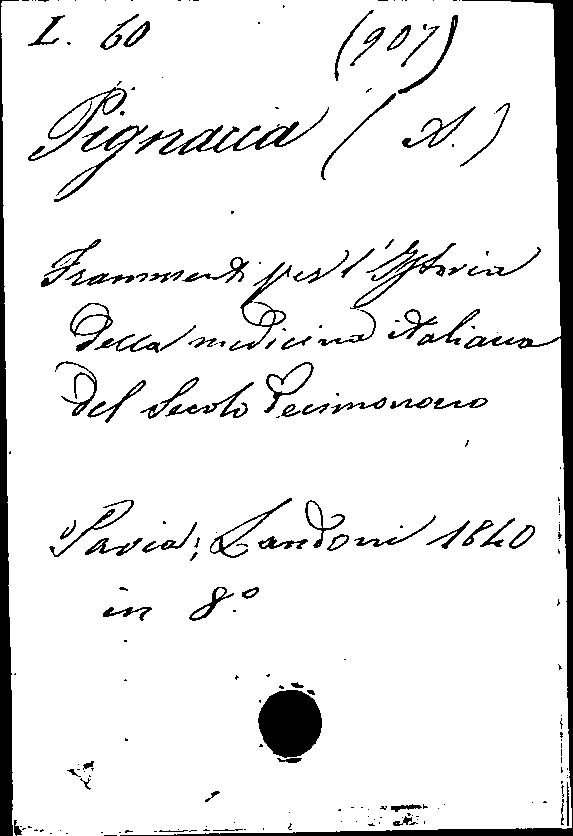 L. 60 (907)
Pignacca (A.)
Frammenti per l'Istoria
della medicina italiana
del Secolo Decimonono
Pavia; Landoni 1840
in 8.°